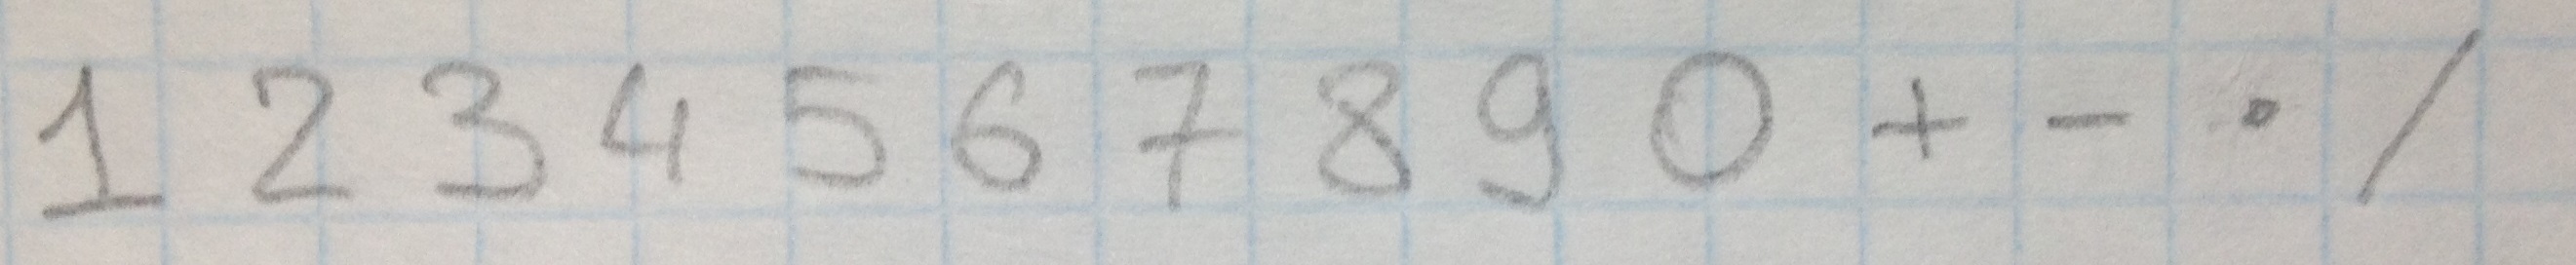 1 2 3 4 5 6 7 8 9 0 + - · /